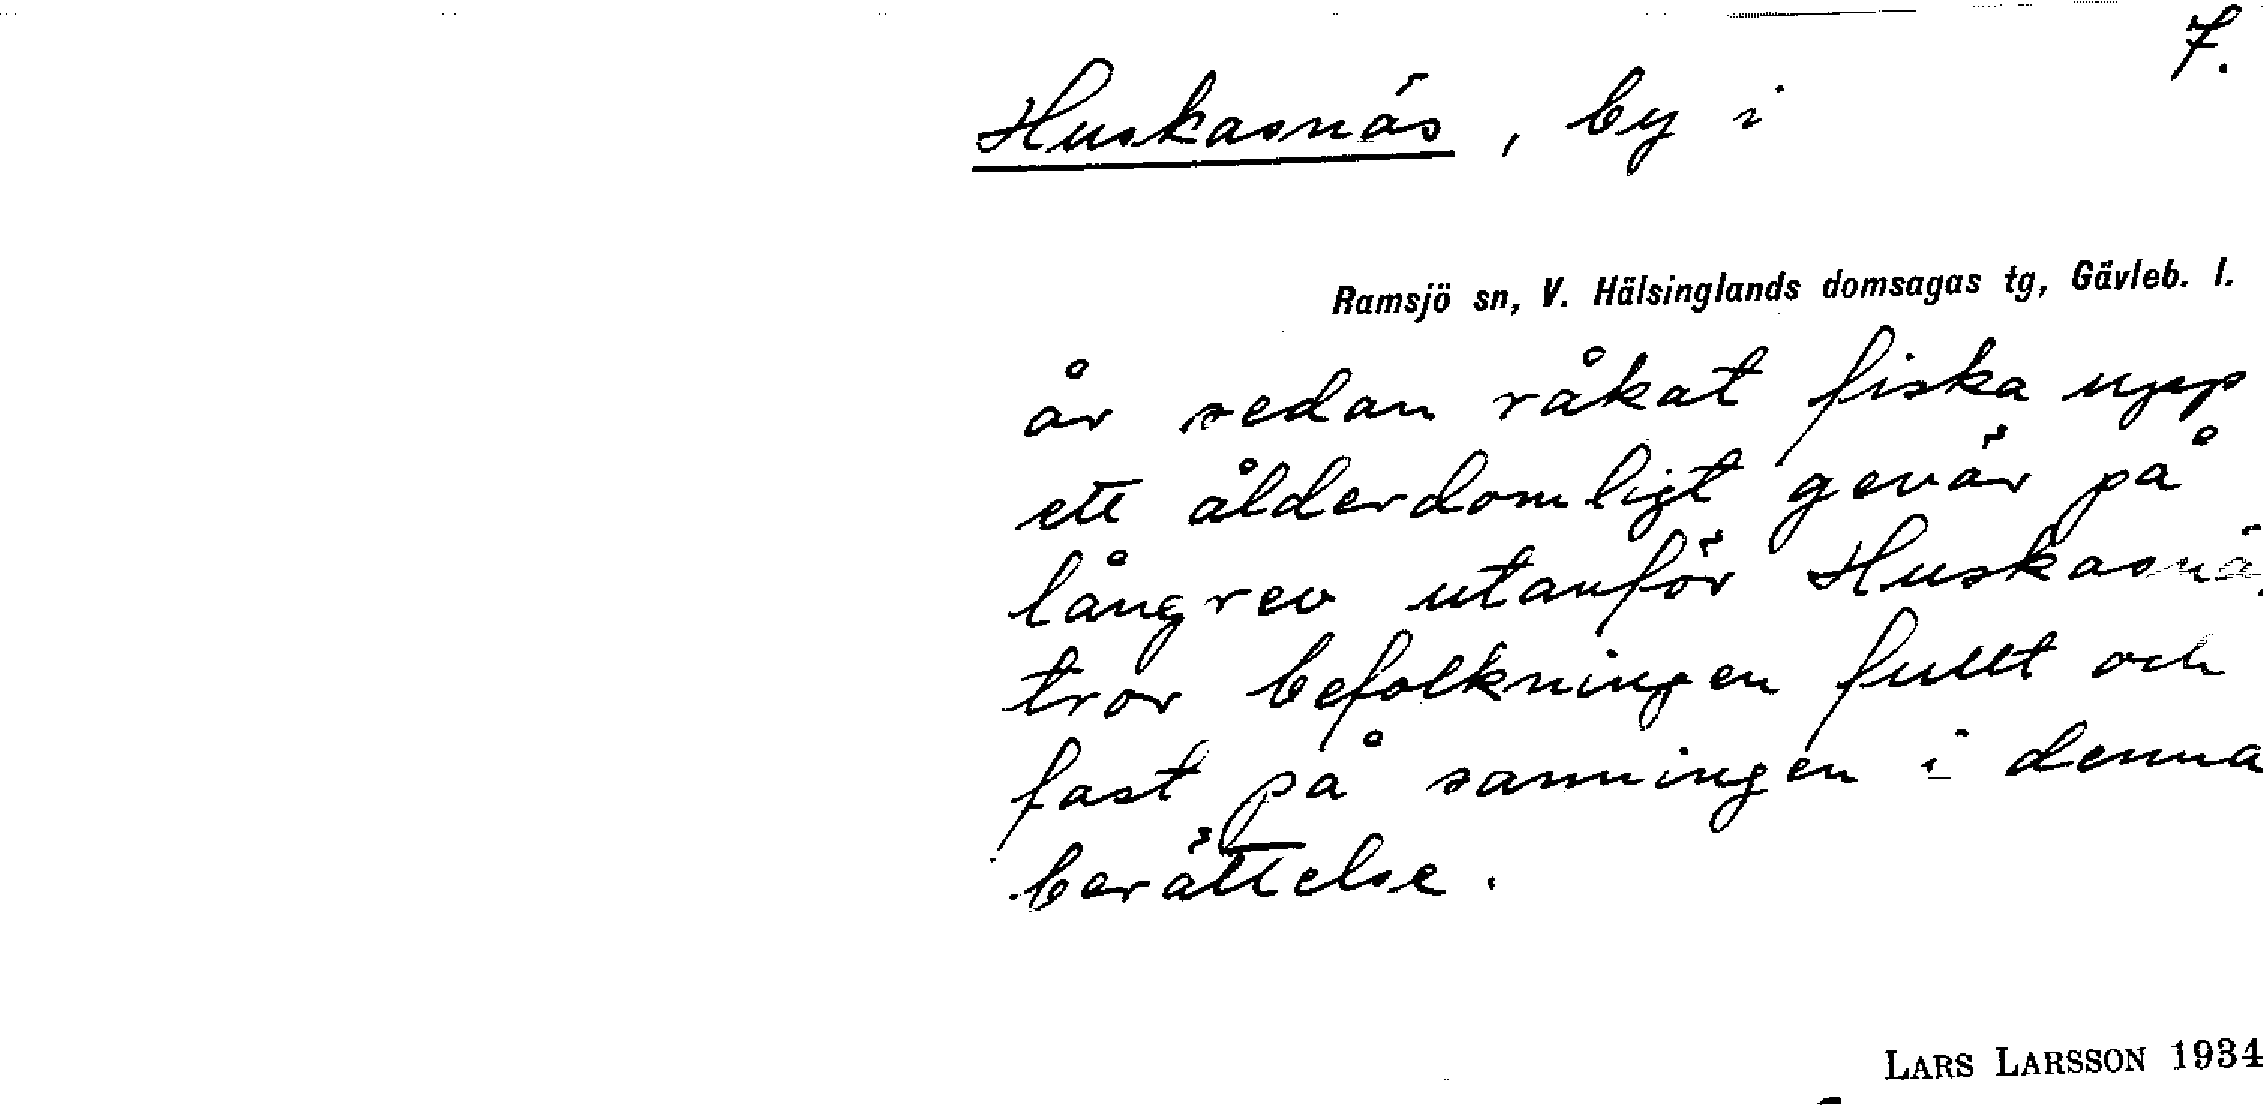 7.
Huskasnäs, by i
Ramsjö sn, V. Hälsinglands domsagas tg, Gävleb. l.
år sedan råkat fiska upp
ett ålderdomligt gevär på
långrev utanför Huskasnä
tror befolkningen fullt och
fast på sanningen i denna
berättelse.
LARS LARSSON 1934